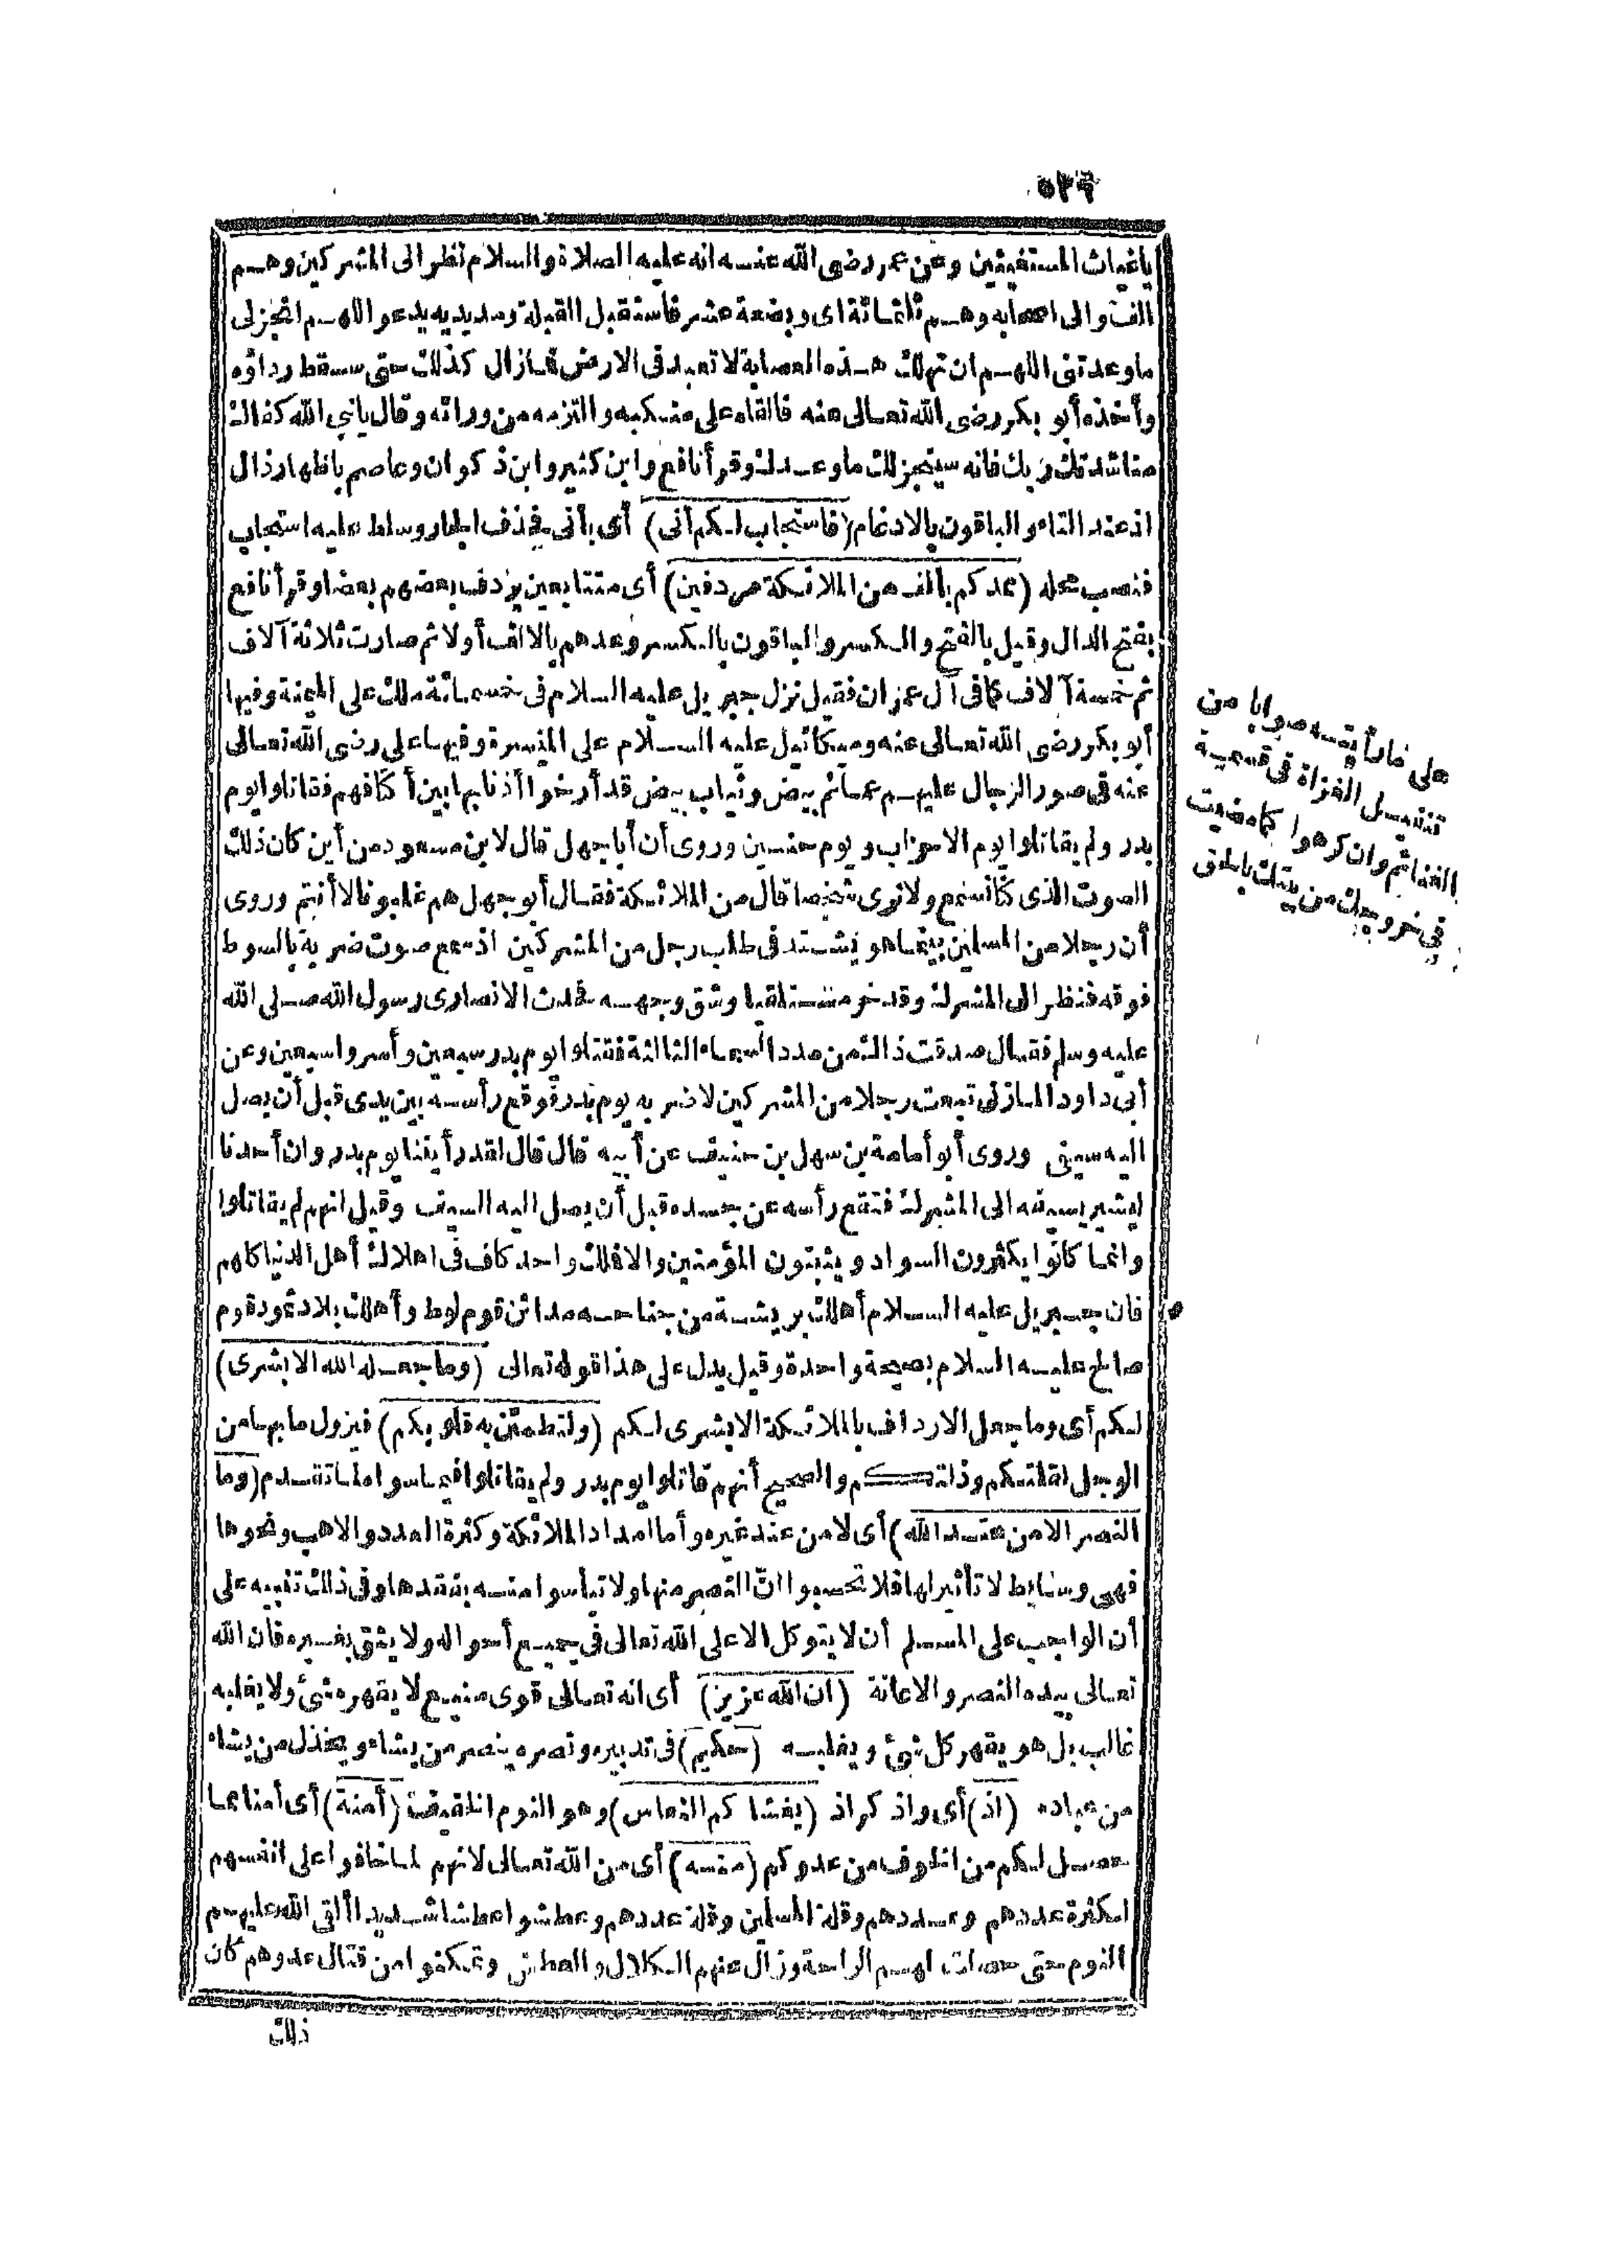 ٥٣٦
ياغياث المستغيثين وعن عمر رضى الله عنه انه عليه الصلاة والسلام نظر الى المشركين وهم
الف والى اصحابه وهم ثلثمائة اى وبضعة عشر فاستقبل القبلة ومد يديه يدعو اللهم انجزلى
ماوعدتنى اللهم ان تهلك هذه العصابة لا تعبد فى الارض فمازال كذلك حتى سقط رداؤه
وأخذه أبو بكر رضى الله تعالى عنه فالقاه على منكبه والتزمه من ورائه وقال يانبي الله كفاك
مناشدتك ربك فانه سينجزلك ماوعدك وقرأ نافع وابن كثير وابن ذكوان وعاصم باظهار ذال
اذ عند التاء والباقون بالادغام (فاستجاب لكم أنى) أى بأنى فحذف الجار وسلط عليه استجاب
فنصب محله (ممدكم بألف من الملائكة مردفين) أى متتابعين يردف بعضهم بعضا وقرأ نافع
بفتح الدال وقيل بالفتح والكسر والباقون بالكسر وعدهم بالالف أولا ثم صارت ثلاثة آلاف
ثم خمسة آلاف كما فى آل عمران فقيل نزل جبريل عليه السلام فى خمسمائة ملك على الميمنة وفيها
أبو بكر رضى الله تعالى عنه وميكائيل عليه السلام على الميسرة وفيها على رضى الله تعالى
عنه فى صور الرجال عليهم عمائم بيض وثياب بيض قد أرخوا أذنابها بين أكتافهم فقاتلوا يوم
بدر ولم يقاتلوا يوم الاحزاب ويوم حنين وروى أن أباجهل قال لابن مسعود من أين كان ذلك
الصوت الذى كنا نسمع ولا نرى شخصا قال من الملائكة فقال أبو جهل هم غلبونا لا أنتم وروى
أن رجلا من المسلمين بينما هو يشتد فى طلب رجل من المشركين اذ سمع صوت ضربة بالسوط
فوقه فنظر الى المشرك وقد خر مستلقيا وشق وجهه فحدث الانصارى رسول الله صلى الله
عليه وسلم فقال صدقت ذاك من مدد السماء الثالثة فقتلوا يوم بدر سبعين وأسروا سبعين وعن
أبى داود المازنى تبعت رجلا من المشركين لاضربه يوم بدر فوقع رأسه بين يدى قبل أن يصل
اليه سيفى وروى أبو أمامة بن سهل بن حنيف عن أبيه قال قال لقد رأيتنا يوم بدر وان أحدنا
ليشير بسيفه الى المشرك فتقع رأسه عن جسده قبل أن يصل اليه السيف وقيل انهم لم يقاتلوا
وانما كانوا يكثرون السواد ويثبتون المؤمنين والا فملك واحد كاف فى اهلاك أهل الدنيا كلهم
فان جبريل عليه السلام أهلك بريشة من جناحه مدائن قوم لوط وأهلك بلاد ثمود قوم
صالح عليه السلام بصيحة واحدة وقيل يدل على هذا قوله تعالى (وماجعله الله الا بشرى)
لكم أى وماجعل الارداف بالملائكة الا بشرى لكم (ولتطمئن به قلوبكم) فيزول مابها من
الوجل لقلتكم وذلتكم والصحيح أنهم قاتلوا يوم بدر ولم يقاتلوا فيما سواه لما تقدم (وما
النصر الا من عند الله) أى لا من عند غيره وأما امداد الملائكة وكثرة العدد والاهب ونحوها
فهى وسايط لا تأثير لها فلا تحسبوا انّ النصر منها ولا تيأسوا منه بفقدها وفى ذلك تنبيه على
أن الواجب على المسلم أن لا يتوكل الا على الله تعالى فى جميع أحواله ولا يثق بغيره فان الله
تعالى بيده النصر والاعانة (ان الله عزيز) أى انه تعالى قوى منيع لا يقهره شئ ولا يغلبه
غالب بل هو يقهر كل شئ ويغلبه (حكيم) فى تدبيره ونصره ينصر من يشاء ويخذل من يشاء
من عباده (اذ) أى واذكر اذ (يغشاكم النعاس) وهو النوم الخفيف (أمنة) أى أمنا مما
حصل لكم من الخوف من عدوكم (منه) أى من الله تعالى لانهم لما خافوا على انفسهم
لكثرة عددهم وعددهم وقلة المسلمين وقلة عددهم وعطشوا عطشا شديدا ألقى الله عليهم
النوم حتى حصلت لهم الراحة وزال عنهم الكلال والعطش وتمكنوا من قتال عدوهم كان
ذلك
على مارأيته صوابا من
تنفيل الغزاة فى قسمة
الغنائم وان كرهوا كما مضيت
فى خروجك من بيتك بالحق